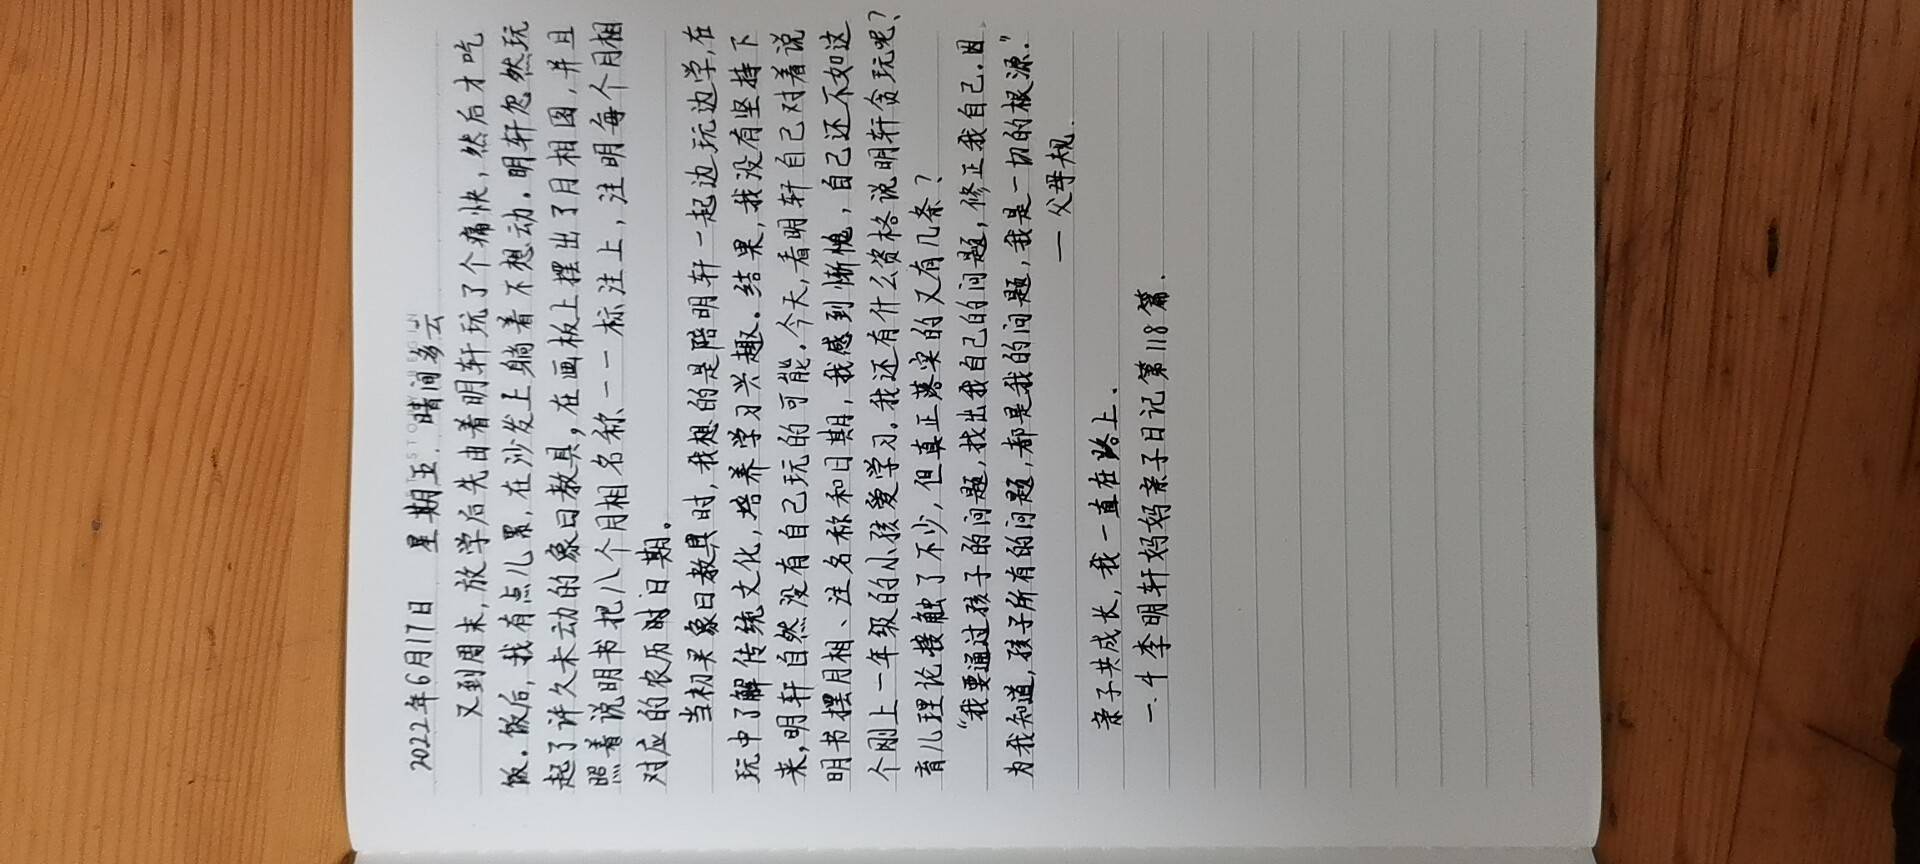 2022年6月17日 星期五. 晴间多云
又到周末,放学后先由着明轩玩了个痛快,然后才吃
饭.饭后,我有点儿累,在沙发上躺着不想动.明轩忽然玩
起了许久未动的象曰教具,在画板上摆出了月相图,并且
照着说明书把八个月相名称一一标注上,注明每个月相
对应的农历时日期。
当初买象曰教具时,我想的是陪明轩一起边玩边学,在
玩中了解传统文化,培养学习兴趣.结果,我没有坚持下
来,明轩自然没有自己玩的可能.今天,看明轩自己对着说
明书摆月相、注名称和日期,我感到惭愧,自己还不如这
个刚上一年级的小孩爱学习.我还有什么资格说明轩贪玩呢?
育儿理论接触了不少,但真正落实的又有几条?
“我要通过孩子的问题,找出我自己的问题,修正我自己.因
为我知道,孩子所有的问题,都是我的问题,我是一切的根源.”
一父母规.
亲子共成长,我一直在路上.
一.4 李明轩妈妈亲子日记第118篇.